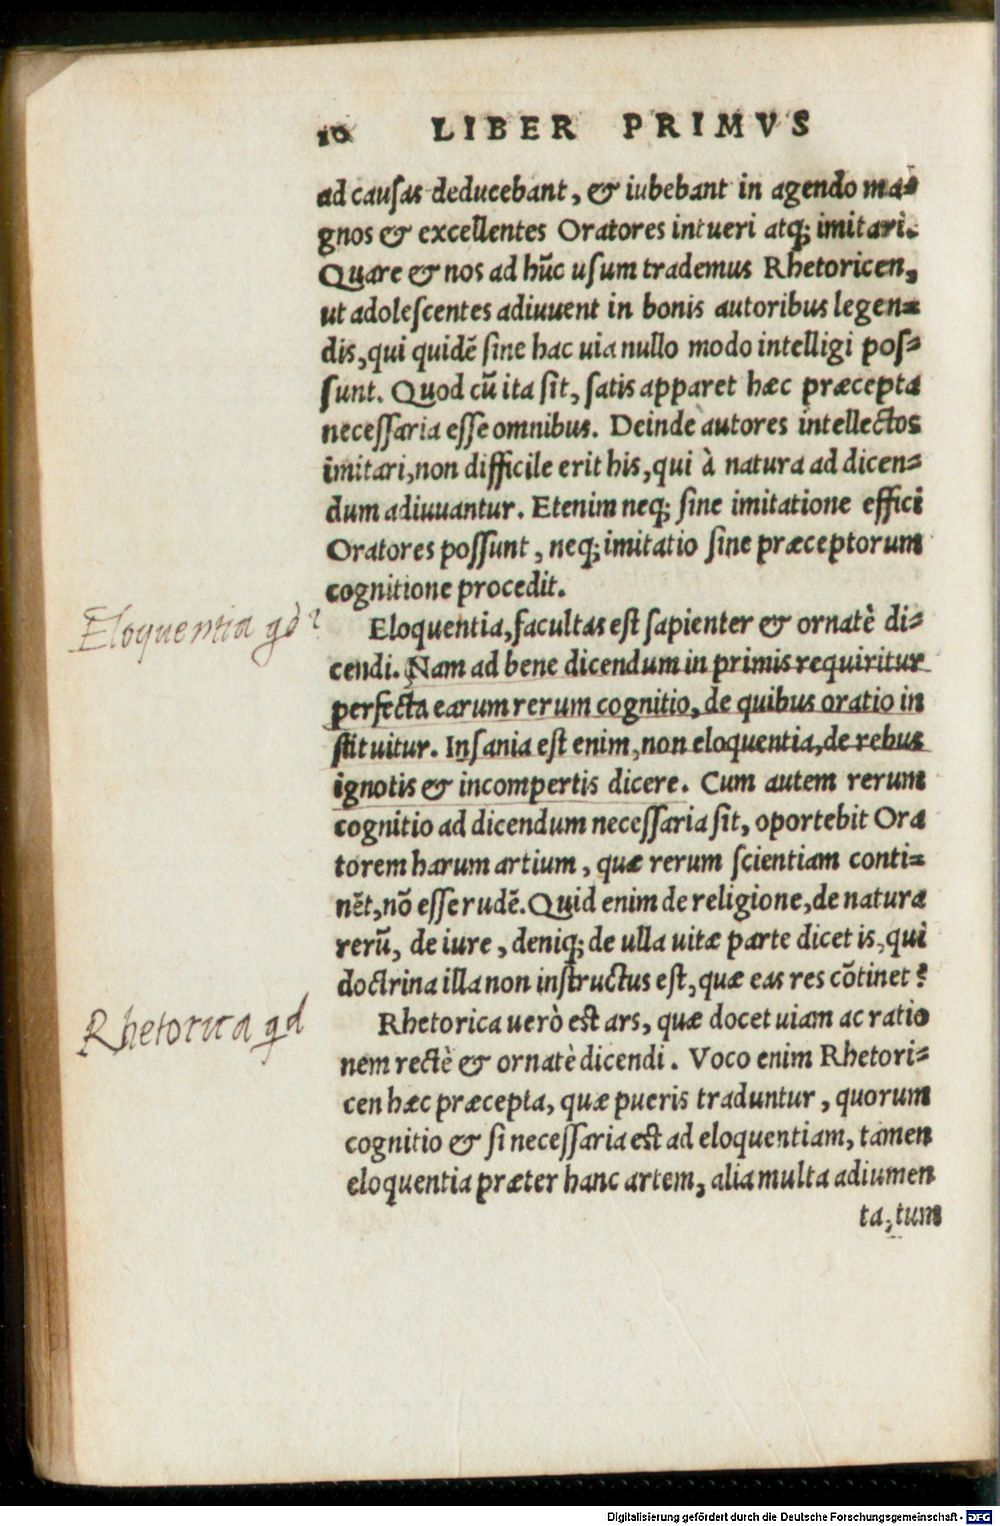 10 LIBER PRIMVS
ad causas deducebant, & iubebant in agendo ma-
gnos & excellentes Oratores intueri atq; imitari.
Quare & nos ad hũc usum trademus Rhetoricen,
ut adolescentes adiuuent in bonis autoribus legen-
dis, qui quidẽ sine hac uia nullo modo intelligi pos-
sunt. Quod cũ ita sit, satis apparet hæc præcepta
necessaria esse omnibus. Deinde autores intellectos
imitari, non difficile erit his, qui à natura ad dicen-
dum adiuuantur. Etenim neq; sine imitatione effici
Oratores possunt, neq; imitatio sine præceptorum
cognitione procedit.
Eloquentia qd?
Eloquentia, facultas est sapienter & ornatè di-
cendi. Nam ad bene dicendum in primis requiritur
perfecta earum rerum cognitio, de quibus oratio in
stituitur. Insania est enim, non eloquentia, de rebus
ignotis & incompertis dicere. Cum autem rerum
cognitio ad dicendum necessaria sit, oportebit Ora
torem harum artium, quæ rerum scientiam conti-
nẽt, nõ esse rudẽ. Quid enim de religione, de natura
rerũ, de iure, deniq; de ulla uitæ parte dicet is, qui
doctrina illa non instructus est, quæ eas res cõtinet?
Rhetorica qd
Rhetorica uerò est ars, quæ docet uiam ac ratio
nem rectè & ornatè dicendi. Voco enim Rhetori-
cen hæc præcepta, quæ pueris traduntur, quorum
cognitio & si necessaria est ad eloquentiam, tamen
eloquentia præter hanc artem, alia multa adiumen
ta, tum
Digitalisierung gefördert durch die Deutsche Forschungsgemeinschaft - DFG